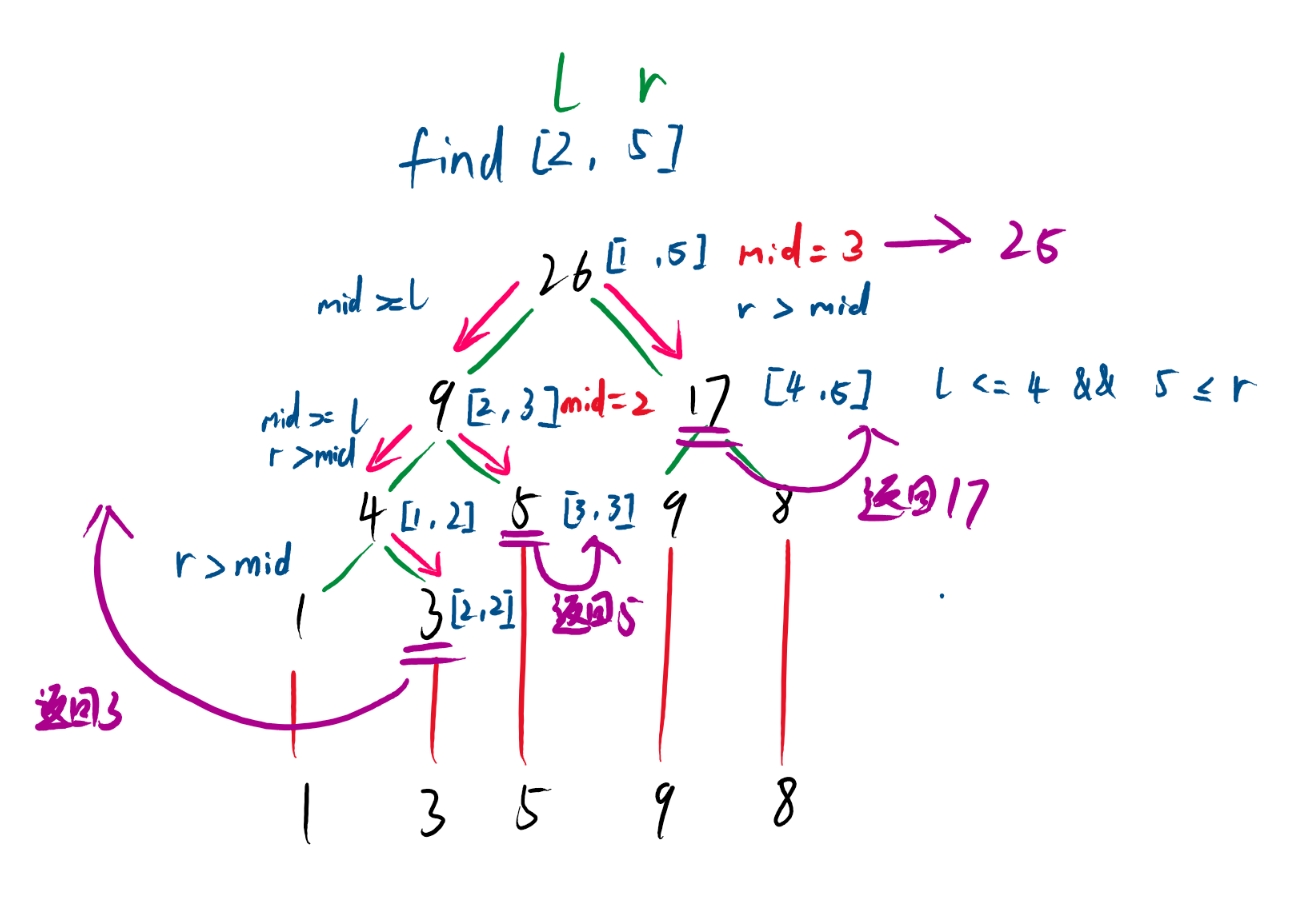 l r
find [2, 5]
26 [1, 5] mid = 3 → 25
mid >= l
r > mid
9 [2, 3] mid = 2 17 [4, 5] l <= 4 && 5 ≤ r
mid >= l
r > mid
4 [1, 2] 5 [3, 3] 9 8 返回17
r > mid
1 3 [2, 2] 返回5
返回3
1 3 5 9 8